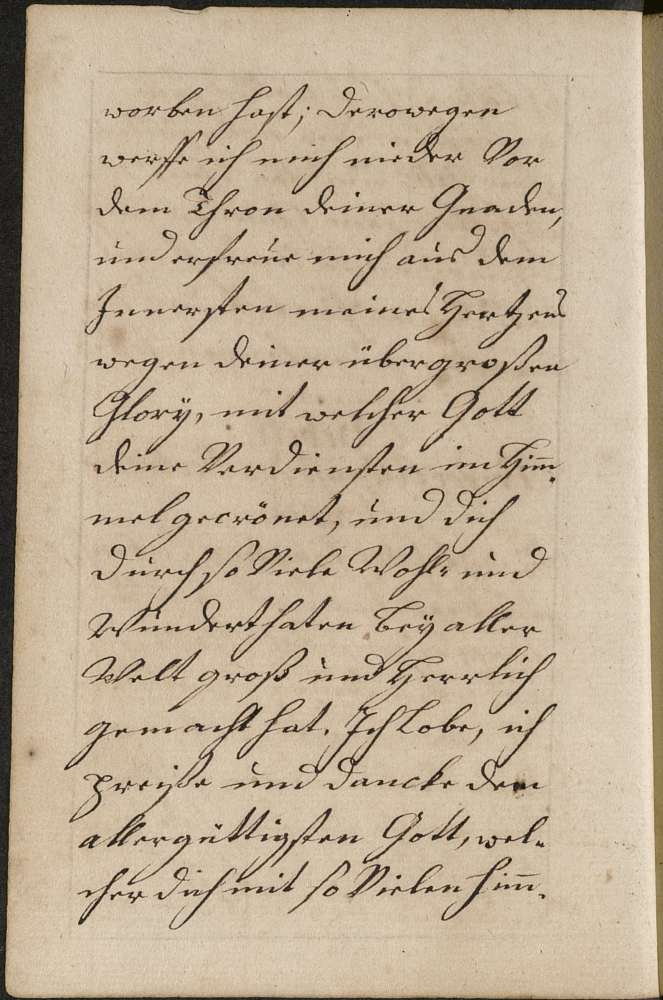 worben hast; derowegen
werffe ich mich nieder Vor
dem Thron deiner Gnaden,
und erfreue mich aus dem
Innersten meines Hertzens
wegen deiner übergroßen
Glory, mit welcher Gott
deine Verdiensten im Him̅-
mel gecrönet, und dich
durch so Viele Wohl- und
Wunderthaten bey aller
Welt groß und Herrlich
gemacht hat. Ich Lobe, ich
preiße und dancke dem
allergüttigsten Gott, wel-
cher dich mit so Vielen him̅-